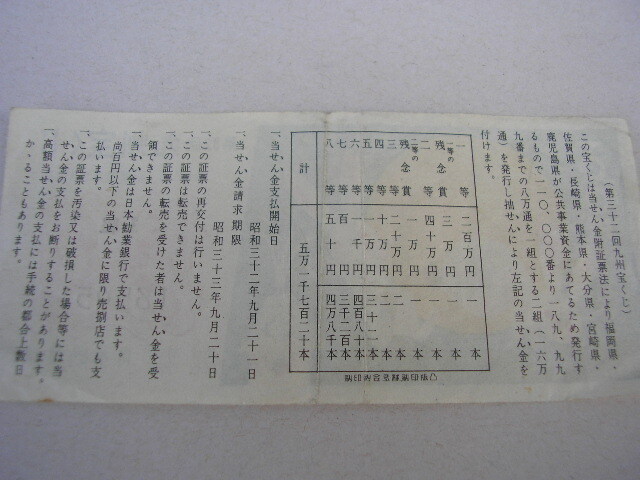 (第三十二回九州宝くじ)
この宝くじは当せん金附証票法により福岡県・
佐賀県・長崎県・熊本県・大分県・宮崎県・
鹿児島県が公共事業資金にあてるため発行す
るもので一一〇、〇〇〇番より一八九、九九
九番までの八万通を一組とする二組(一六万
通)を発行し抽せんにより左記の当せん金を
付けます。
一等 二百万円 一本
一等の残念賞 三万円
二等 四十万円 一本
二等の残念賞 一万円
三等 二十万円
四等 十万円
五等 一万円 三十二本
六等 一千円 四百八十本
七等 百円 三千二百本
八等 五十円 四万八千本
計 五万一千七百二十本
凸版印刷株式会社印刷
一、当せん金支払開始日
昭和三十二年九月二十一日
一、当せん金請求期限
昭和三十三年九月二十日
一、この証票の再交付は行いません。
一、この証票は転売できません。
一、この証票の転売を受けた者は当せん金を受
領できません。
一、当せん金は日本勧業銀行で支払います。
尚百円以下の当せん金に限り売捌店でも支
払います。
一、この証票を汚染又は破損した場合等には当
せん金の支払をお断りすることがあります。
一、高額当せん金の支払には手続の都合上数日
かゝることもあります。